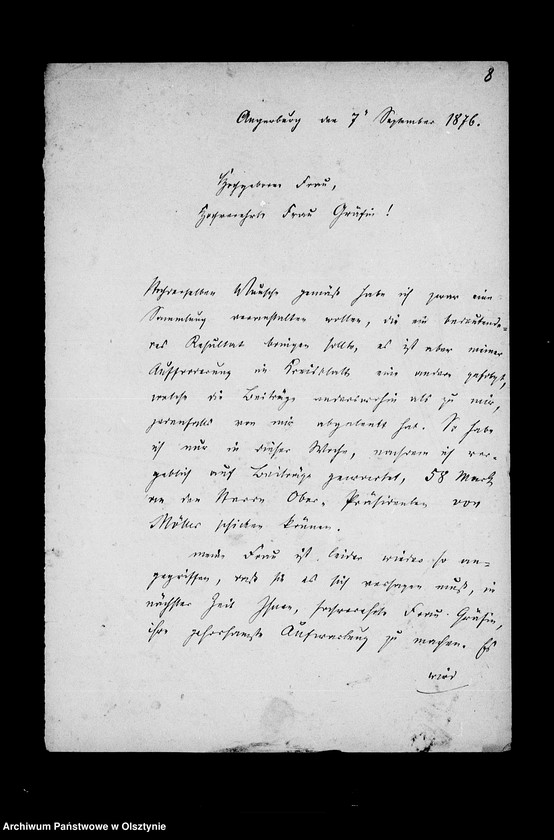 8
Angerburg den 7ᵗ September 1876.
Hochgeborne Frau,
Hochverehrte Frau Gräfin!
Hochderselben Wunsche gemäß habe ich zwar eine
Sammlung veranstalten wollen, die ein bedeutende-
res Resultat bringen sollte, es ist aber meiner
Aufforderung im Kreisblatte eine andere gefolgt,
welche die Beiträge anderswohin als zu mir,
jedenfalls von mir abgelenkt hat. So habe
ich nur in dieser Woche, nachdem ich ver-
geblich auf Beiträge gewartet, 58 Mark
an den Herrn Ober-Präsidenten von
schicken können.
Meine Frau ist leider wieder so an-
gegriffen, daß sie es sich versagen muß, in
nächster Zeit Ihnen, hochverehrte Frau Gräfin,
ihre gehorsamste Aufwartung zu machen. Es
wird
Archiwum Państwowe w Olsztynie